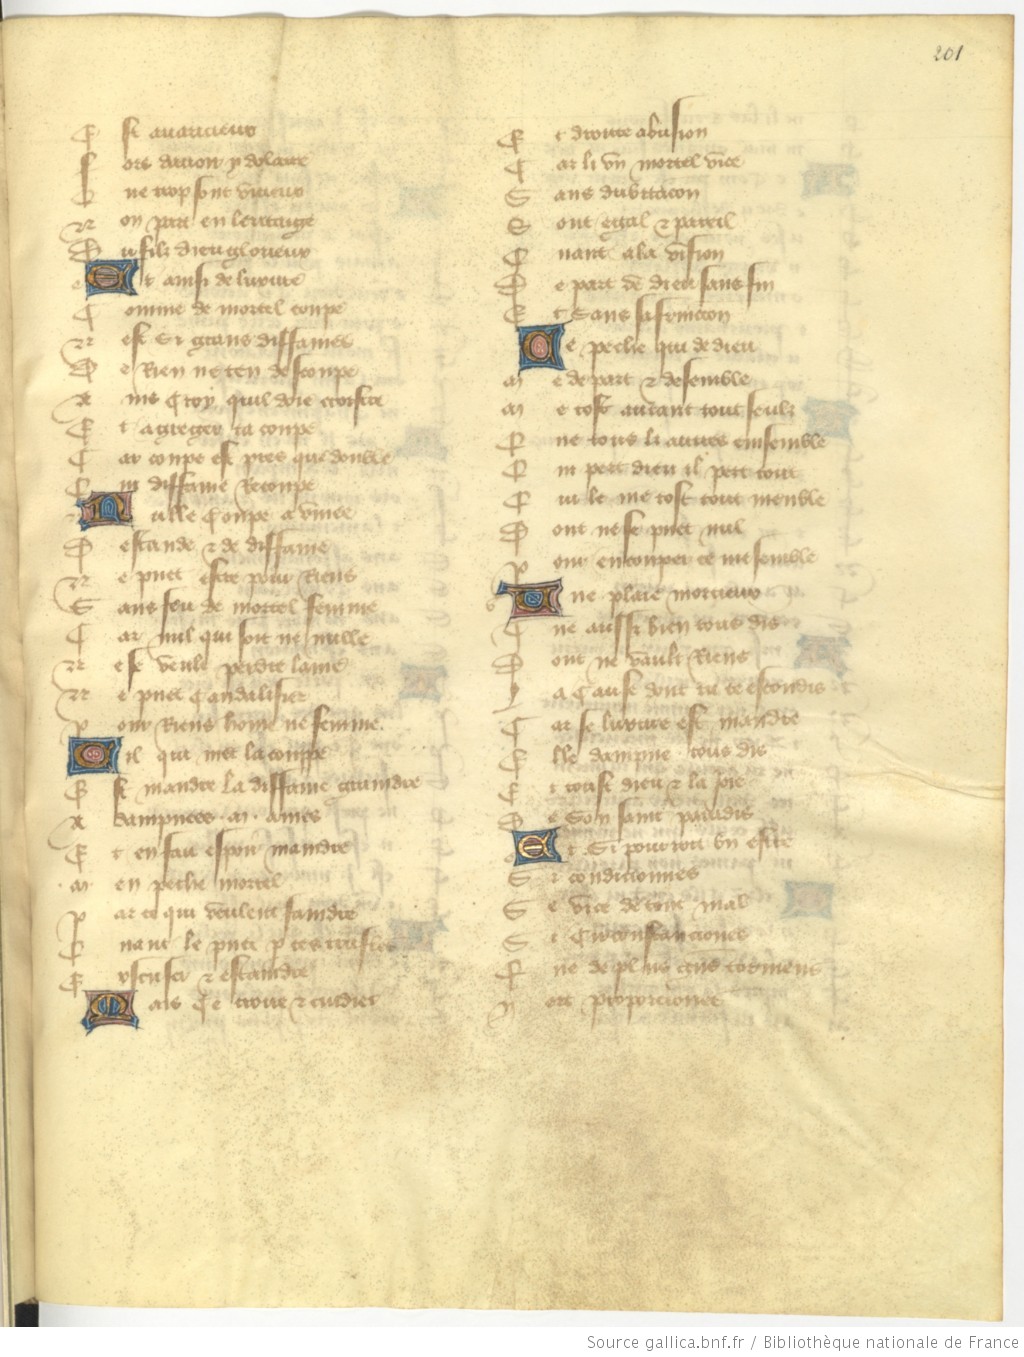 201
E st avaricieux
F ors diction ydolatre
E ne trop sont vicieux
N on part en leritaige
D u filz dieu glorieux
Et ainsi de luxure
C omme de mortel coupe
N est si grans diffames
D e Rien ne ten descoupe
A ins croy quil doie croistre
E t agreger ta coupe
C ar coupe est pres que double
E n diffame Recoupe
Nulle coupe a vince
D estande et de diffame
N e puet estre pour Riens
S ans feu de mortel femme
C ar nul qui soit ne nulle
N e se veult perdre lame
N e puet candalisier
P our Riens home ne femme
Cil qui met la couppe
E st maindre la diffame graindre
A dampnees .m. ames
E t en fait espoir maindre
.M. en peche mortel
P ar ce qui veulent faindre
E nant le puet p ces
E xcuser et estaindre
Mais ce croire et cuidier
E t droite abusion
C ar li un mortel vice
S ans dubitacon
S ont egal et pareil
C nant a la vision
D e part de dieu sans fin
E t sans sa fruicion
Ce peche qui de dieu
M e depart et dessemble
M e tost autant tout seulz
E ne tous li autres ensemble
E ui pert dieu il pert tout
E ui le me tost tout menble
D ont ne se puet nul
P our encouper ce me semble
Une plaie mortieux
C ne aussi bien tous dis
D ont ne vault Riens
L a cause dont tu te escondis
C ar se luxure est maindre
E lle dampne tous dis
E t tost dieu et la joie
D e son saint paradis
Et si pourroit un estre
S i condicionnes
S e vice de tout mal
S i circonstancionnes
E ne de plus tormens
N ort proporcionez
Source gallica.bnf.fr / Bibliothèque nationale de France